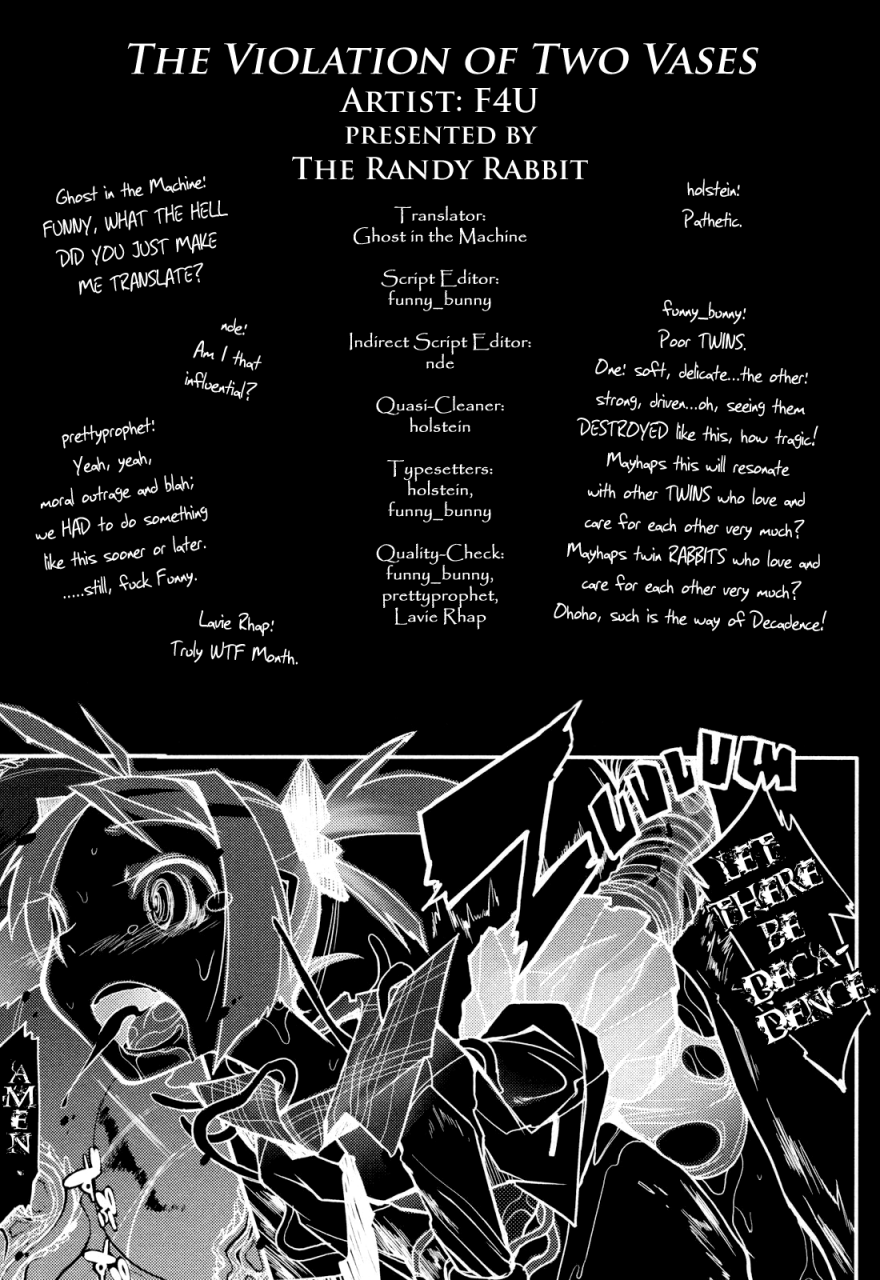 The Violation of Two Vases
Artist: F4U
presented by
The Randy Rabbit
Ghost in the Machine:
FUNNY, WHAT THE HELL
DID YOU JUST MAKE
ME TRANSLATE?
nde:
Am I that
influential?
prettyprophet:
Yeah, yeah,
moral outrage and blah;
we HAD to do something
like this sooner or later.
.....still, fuck Funny.
Lavie Rhap:
Truly WTF Month.
Translator:
Ghost in the Machine
Script Editor:
funny_bunny
Indirect Script Editor:
nde
Quasi-Cleaner:
holstein
Typesetters:
holstein,
funny_bunny
Quality-Check:
funny_bunny,
prettyprophet,
Lavie Rhap
holstein:
Pathetic.
funny_bunny:
Poor TWINS.
One: soft, delicate...the other:
strong, driven...oh, seeing them
DESTROYED like this, how tragic!
Mayhaps this will resonate
with other TWINS who love and
care for each other very much?
Mayhaps twin RABBITS who love and
care for each other very much?
Ohoho, such is the way of Decadence!
LET
THERE
BE
DECA-
DENCE
AMEN.